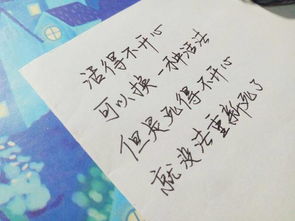 活得不开心
可以换一种活法
但是死得不开心
就没法重新死了